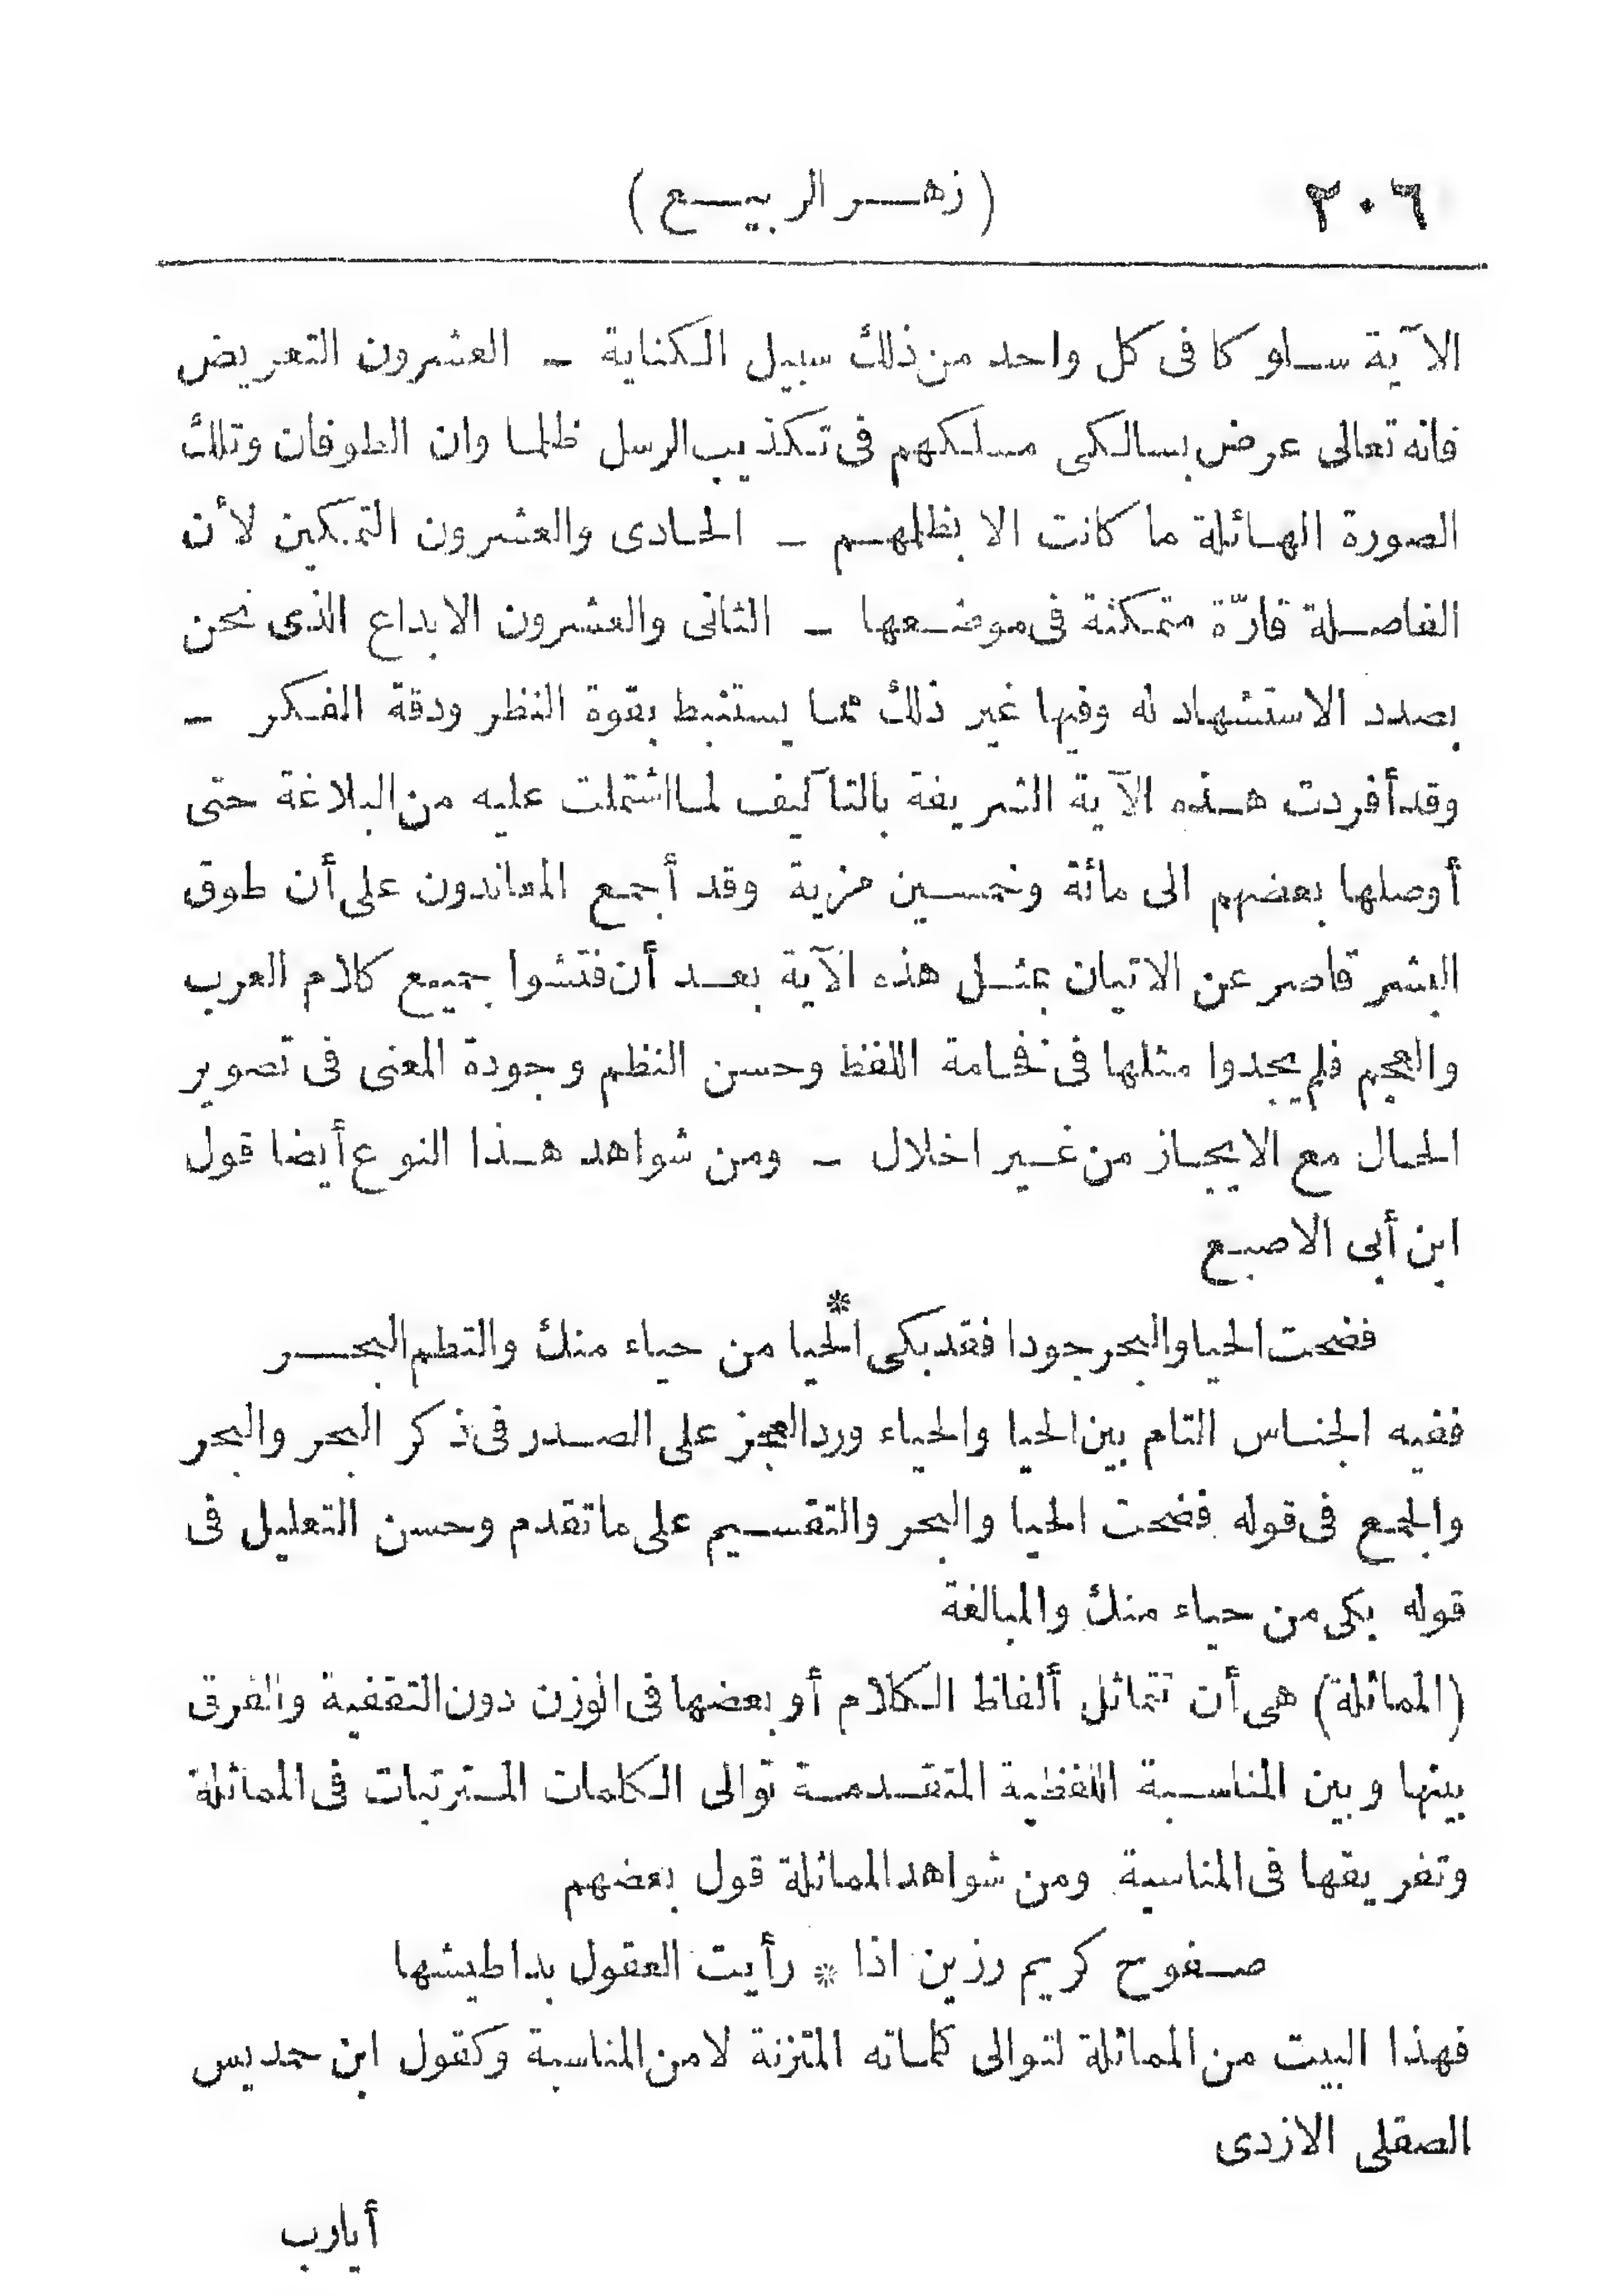 ٢٠٦
(زهر الربيع)
الآية سلوكا فى كل واحد من ذلك سبيل الكناية ـ العشرون التعريض
فانه تعالى عرض بسالكى مسلكهم فى تكذيب الرسل ظلما وان الطوفان وتلك
الصورة الهائلة ما كانت الا بظلمهم ـ الحادى والعشرون التمكين لأن
الفاصلة قارّة متمكنة فى موضعها ـ الثانى والعشرون الابداع الذى نحن
بصدد الاستشهاد له وفيها غير ذلك مما يستنبط بقوة النظر ودقة الفكر ـ
وقد أفردت هذه الآية الشريفة بالتآليف لما اشتملت عليه من البلاغة حتى
أوصلها بعضهم الى مائة وخمسين مزية وقد أجمع المعاندون على أن طوق
البشر قاصر عن الاتيان بمثل هذه الآية بعد أن فتشوا جميع كلام العرب
والعجم فلم يجدوا مثلها فى فخامة اللفظ وحسن النظم وجودة المعنى فى تصوير
الحال مع الايجاز من غير اخلال ـ ومن شواهد هذا النوع أيضا قول
ابن أبى الاصبع
فضحت الحيا والبحر جودا فقد بكى * الحيا من حياء منك والتطم البحر
ففيه الجناس التام بين الحيا والحياء ورد العجز على الصدر فى ذكر البحر والبحر
والجمع فى قوله فضحت الحيا والبحر والتقسيم على ما تقدم وحسن التعليل فى
قوله بكى من حياء منك والمبالغة
(المماثلة) هى أن تتماثل ألفاظ الكلام أو بعضها فى الوزن دون التقفية والفرق
بينها وبين المناسبة اللفظية المتقدمة توالى الكلمات المترتبات فى المماثلة
وتفريقها فى المناسبة ومن شواهد المماثلة قول بعضهم
صفوح كريم رزين اذا * رأيت العقول بدا طيشها
فهذا البيت من المماثلة لتوالى كلماته المتزنة لا من المناسبة وكقول ابن حمديس
الصقلى الازدى
أيارب